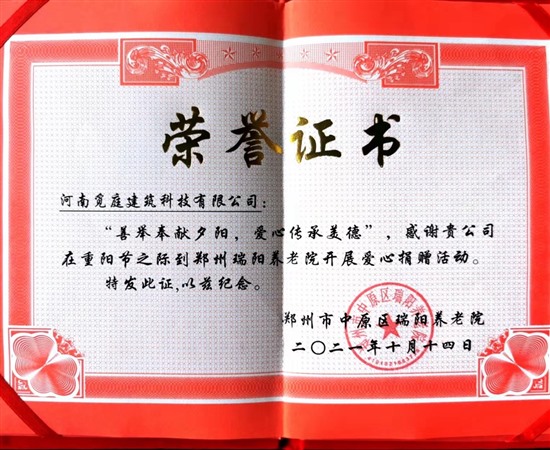 荣誉证书
河南觅庭建筑科技有限公司：
“善举奉献夕阳，爱心传承美德”，感谢贵公司
在重阳节之际到郑州瑞阳养老院开展爱心捐赠活动。
特发此证，以兹纪念。
郑州市中原区瑞阳养老院
二〇二一年十月十四日